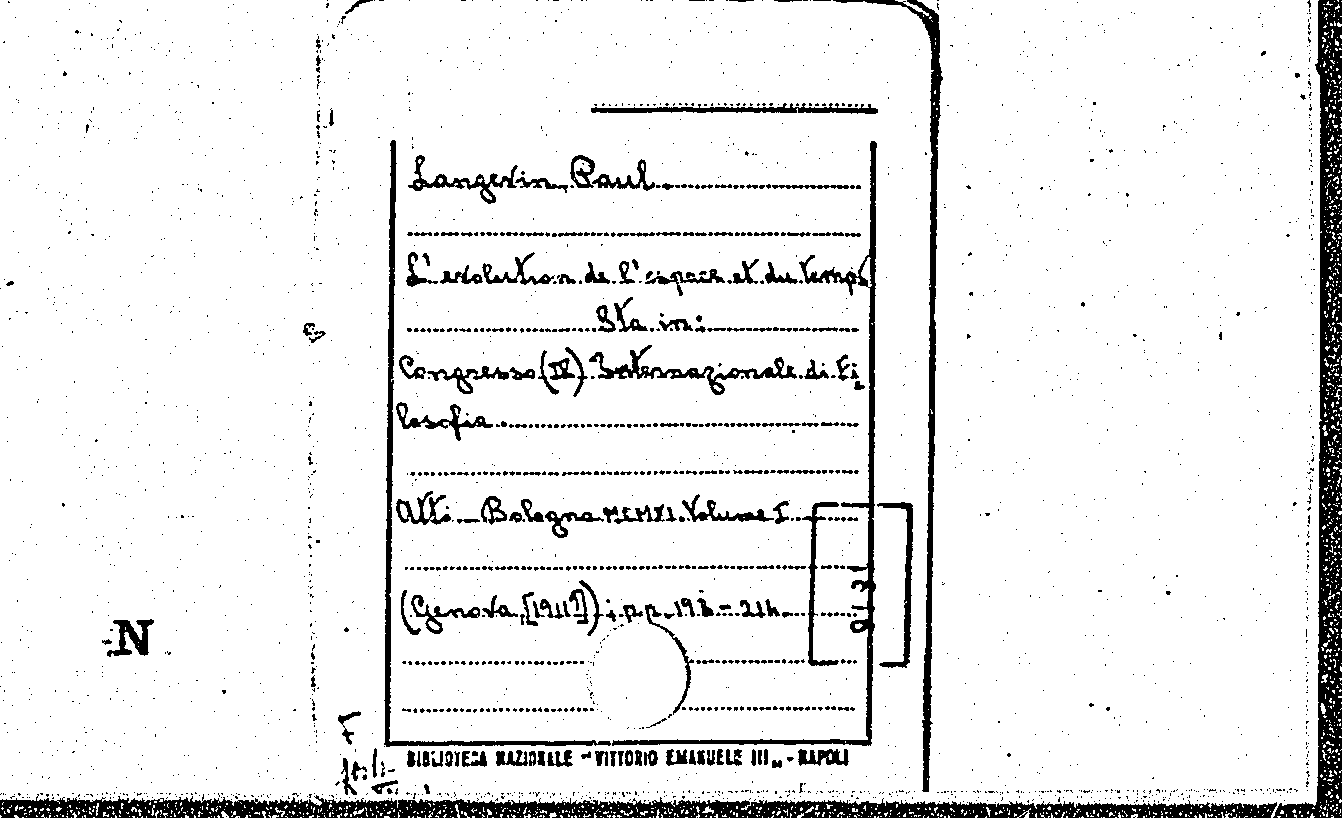 Langevin Paul.
L'evolution de l'espace et du temps
Sta in:
Congresso (IV) Internazionale di Fi=
losofia.
Atti - Bologna MCMXI. Volume I
(Genova, [1911?]); pp. 193 - 214.
N
BIBLIOTECA NAZIONALE "VITTORIO EMANUELE III" - NAPOLI